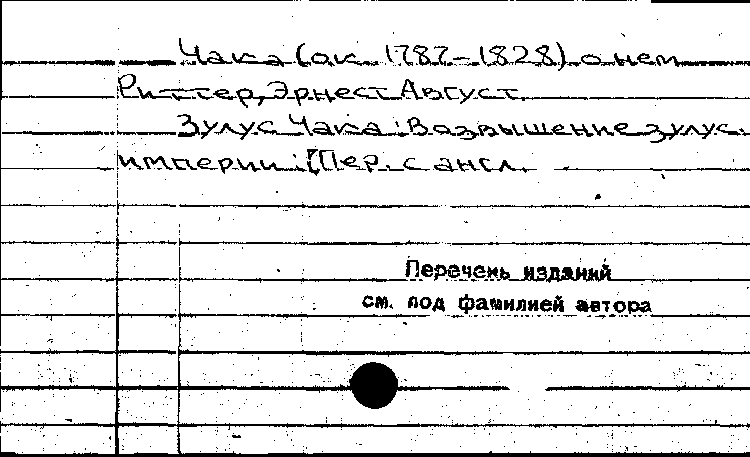 Чака (ок. 1787-1828) о нем
Риттер, Эрнест Август.
Зулус Чака : Возвышение зулус.
империи : [Пер. с англ.
Перечень изданий
см. под фамилией автора